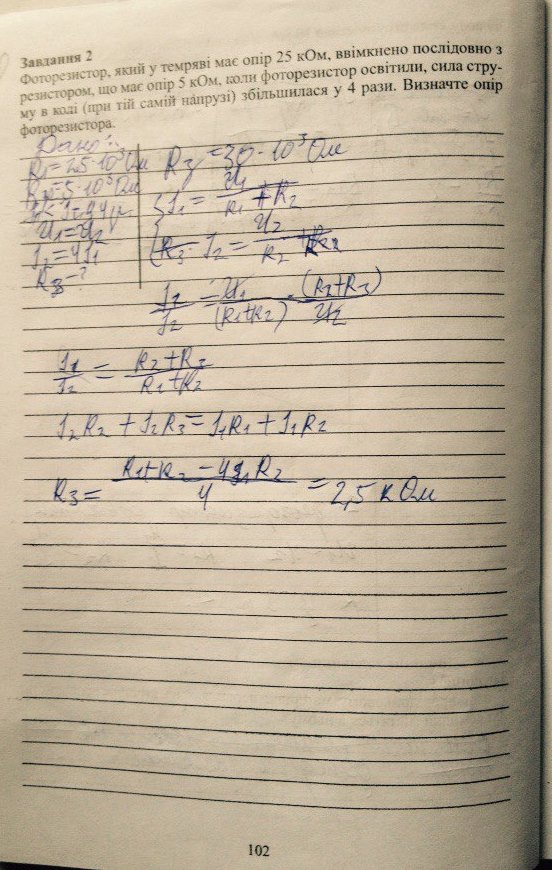 Завдання 2
Фоторезистор, який у темряві має опір 25 кОм, ввімкнено послідовно з
резистором, що має опір 5 кОм, коли фоторезистор освітили, сила стру-
му в колі (при тій самій напрузі) збільшилася у 4 рази. Визначте опір
фоторезистора.
Дано:
R₁=25·10³Ом
R₂=5·10³Ом
U₁=U₂
I₂=4I₁
R₃-?
Rз=30·10³Ом
I₁= U₁/(R₁+R₂)
I₂=
I₁/I₂ = U₁/(R₁+R₂) · (R₂+R₃)/U₂
I₁/I₂ = (R₂+R₃)/(R₁+R₂)
I₂R₂ + I₂R₃=I₁R₁+I₁R₂
R₃= =2,5 кОм
102